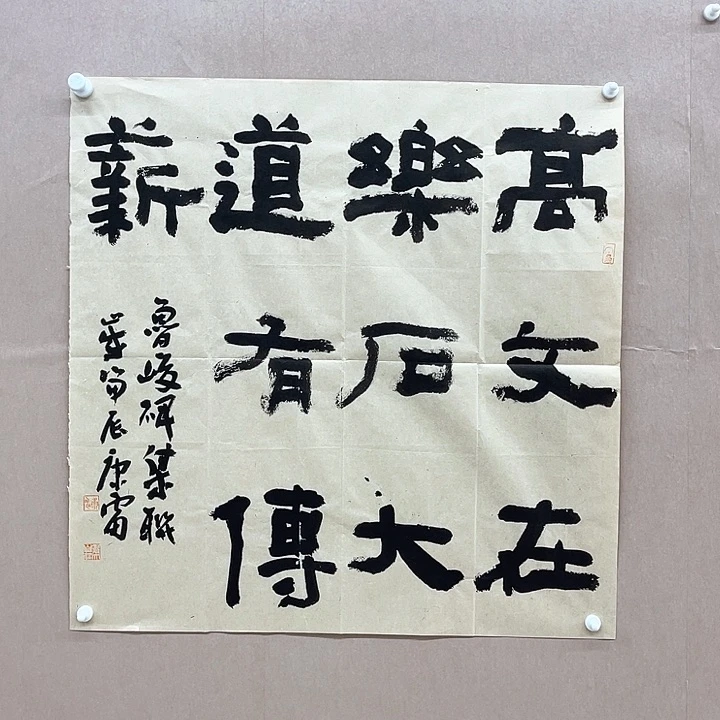 高文在
樂石大
道有傳
薪
魯峻碑集聯
歲富辰康雷